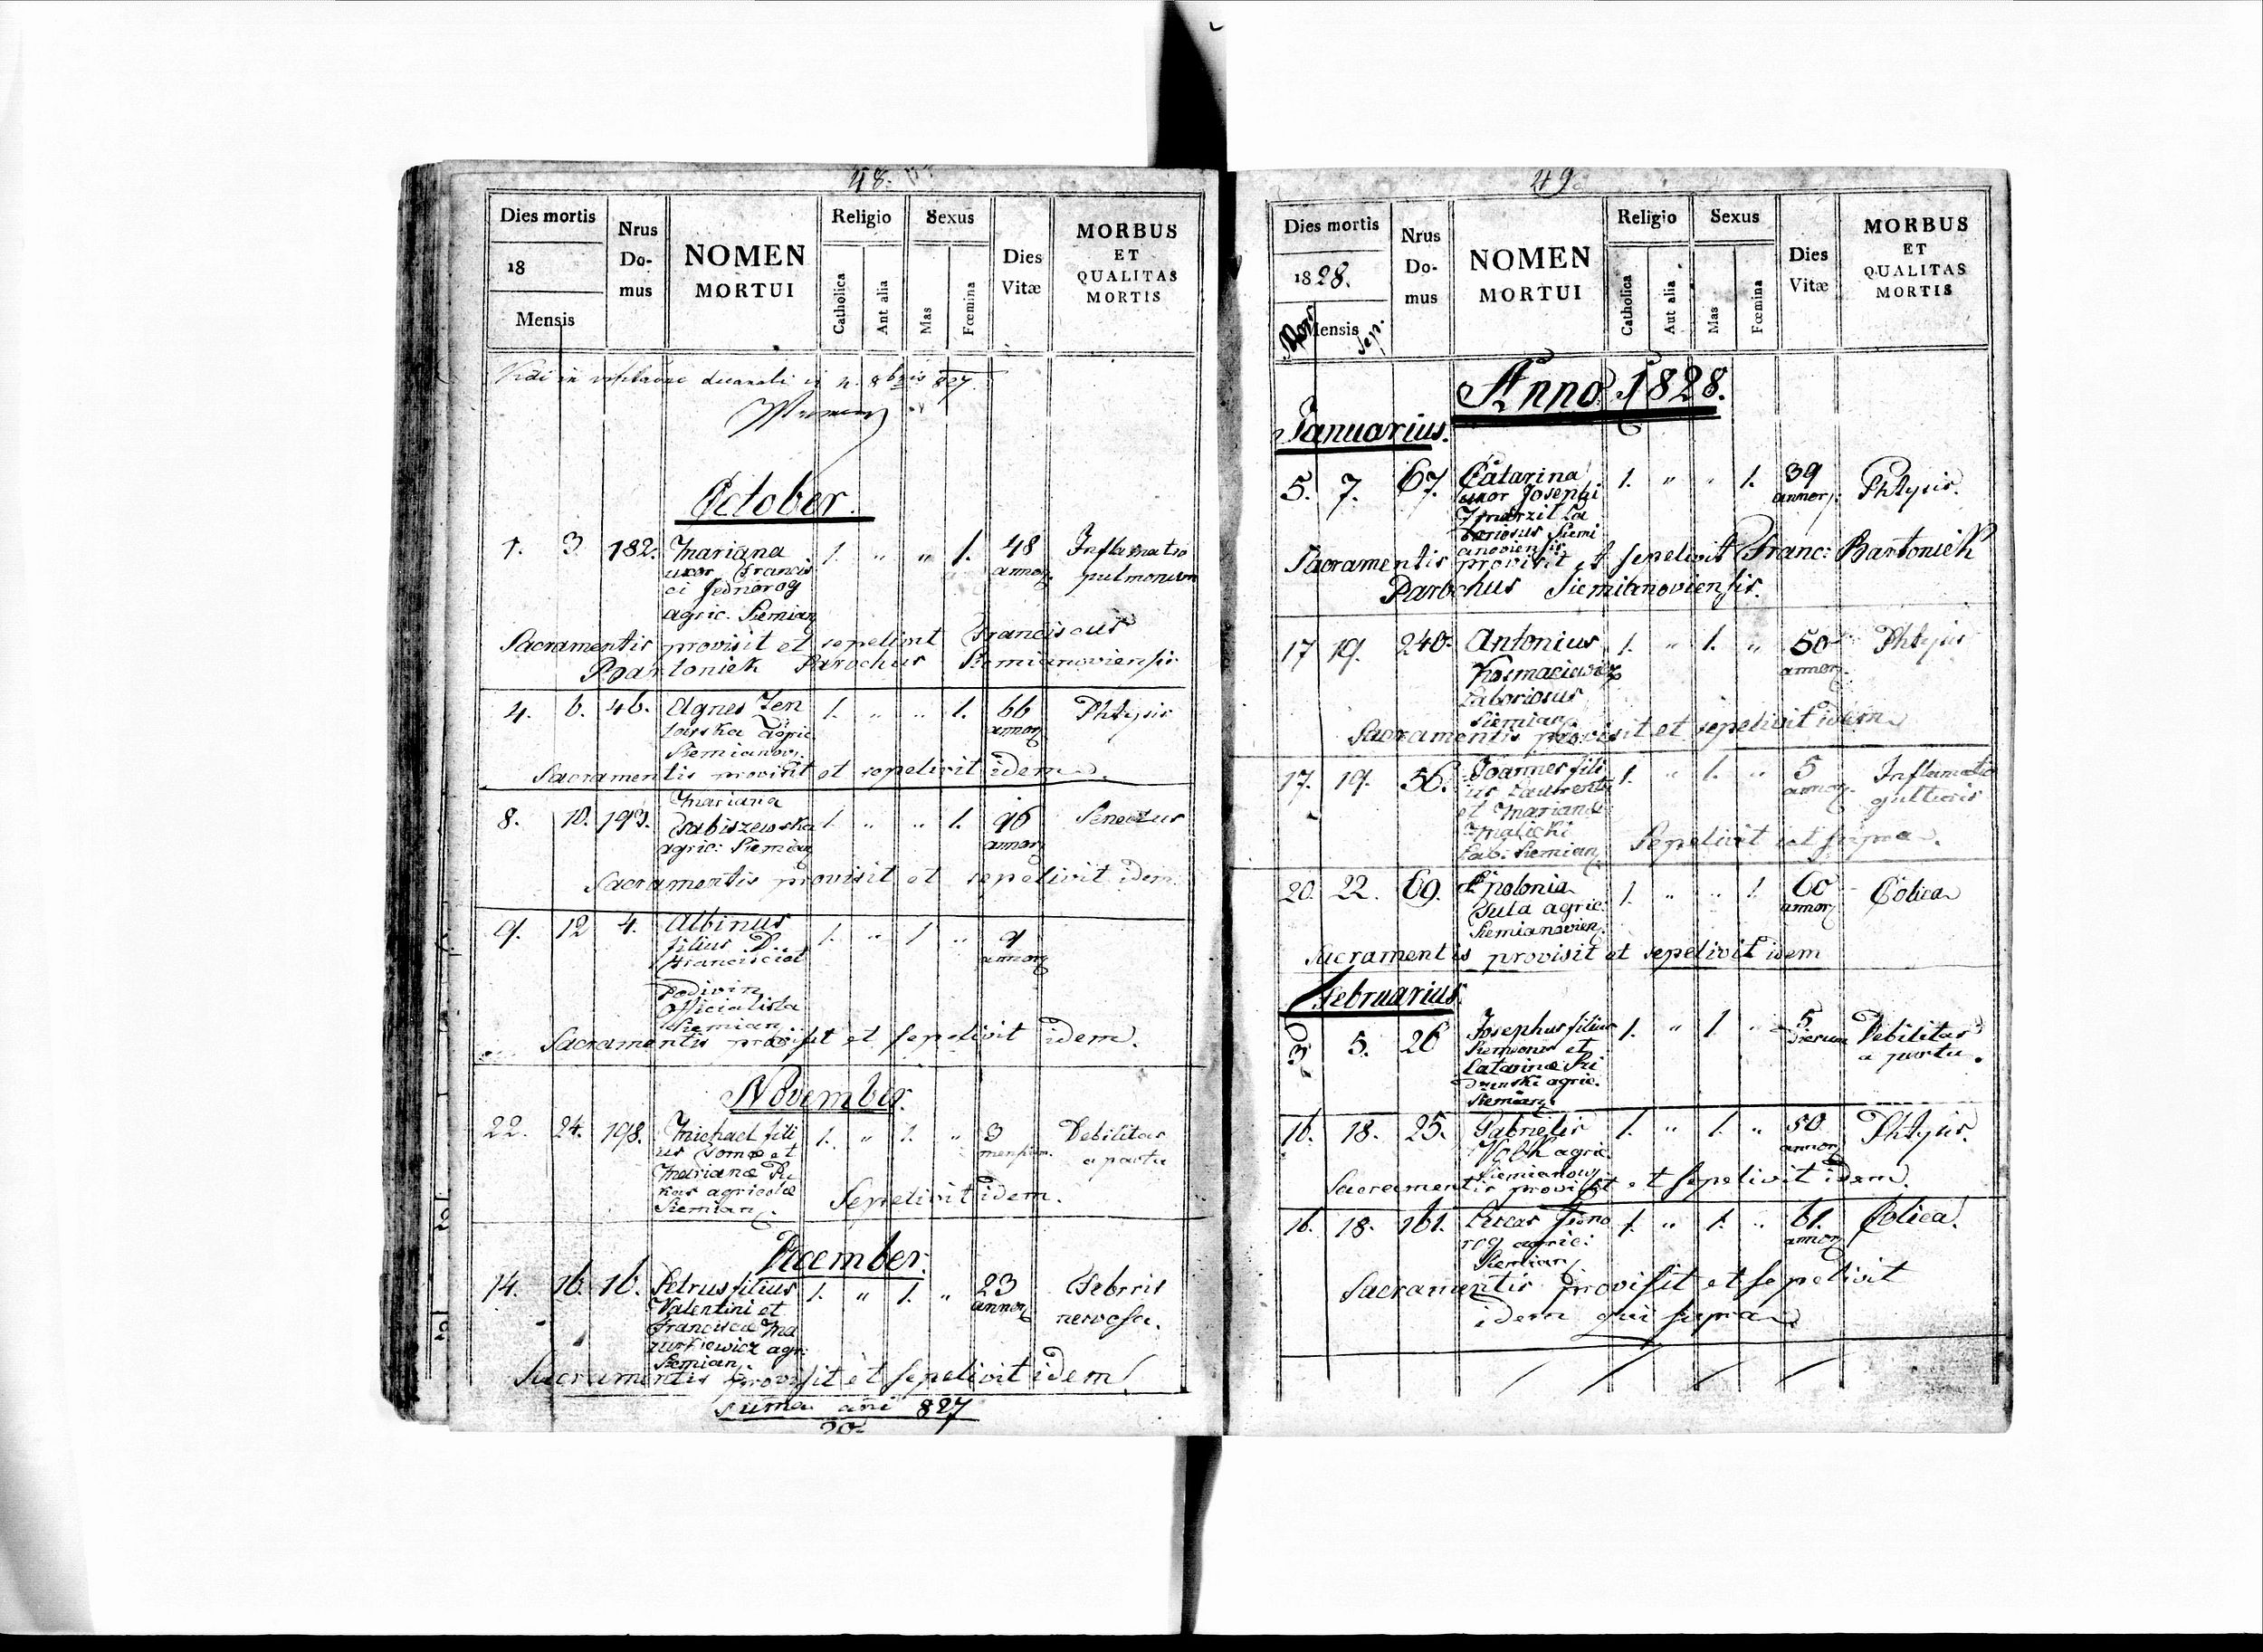 48.
Dies mortis
18
Mensis
Nrus
Do-
mus
NOMEN
MORTUI
Religio
Catholica
Ant alia
Sexus
Mas
Fœmina
Dies
Vitæ
MORBUS
ET
QUALITAS
MORTIS
Vidi in 8bris 827.
October.
1. 3 182. Mariana 1. " " 1. 48 Inflamatio
uxor Francis annor. pulmonum
ci Jednorog
agric. Siemian
Sacramentis provisit et sepelivit Franciscus
Bartoniek Parochus Siemianoviensis
4. 6. 46. Agnes Zen 1. " " 1. 66 Phtysis
larska agric annor
Siemianov.
Sacramentis provisit et sepelivit idem.
8. 10. 193. Mariana
Babiszewska 1. " " 1. 96 Senectus
agric: Siemian annor
Sacramentis provisit et sepelivit idem.
9. 12 4. Albinus 1. " 1 " 9
filius D. annor
Francisci et
Podivin
Officialista
Siemian
Sacramentis provisit et sepelivit idem.
November.
22. 24. 198. Michael fili 1. " 1. " 3 Debilitas
us Tomæ et mensium. a partu
Marianæ Pu
kas agricolæ
Siemian. Sepelivit idem.
December.
14. 16. 16. Petrus filius 1. " 1. " 23 Febris
Valentini et annor nervosa.
Franciscæ Ma
zurkiewicz agr:
Siemian.
Sacramentis provisit et sepelivit idem
Suma ani 827
20.
49.
Dies mortis
1828.
Mensis
Mort.
Sep.
Nrus
Do-
mus
NOMEN
MORTUI
Religio
Catholica
Aut alia
Sexus
Mas
Fœmina
Dies
Vitæ
MORBUS
ET
QUALITAS
MORTIS
Anno 1828.
Januarius.
5. 7. 67. Catarina 1. " " 1. 39 Phtysis.
uxor Josephi annor.
La
boriosus Siemi
anoviensis
Sacramentis provisit et sepelivit Franc: Bartoniek
Parochus Siemianoviensis.
17 19. 240. Antonius 1. " 1. " 50 Phtysis
Kosmaciewicz annor.
Laboriosus
Siemian
Sacramentis provisit et sepelivit idem
17. 19. 56. Joannes fili 1. " 1. " 5 Inflamatio
us Laurenti annor. gutturis
et Marianæ
Malicki
Lab. Siemian Sepelivit ut supra.
20. 22. 69. Apolonia 1. " " 1 60 Colica
Suta agric. annor
Siemianovien.
Sacramentis provisit et sepelivit idem
Februarius.
3. 5. 26 Josephus filius 1. " 1. " 5 Debilitas
Siemionis et dierum a partu.
Catarinæ
agric.
Siemian.
16. 18. 25. Gabrielis 1. " 1. " 50 Phtysis.
Wolk agric. annor
Siemianow
Sacramentis provisit et sepelivit idem.
16. 18. 161. Lucas Jedno 1. " 1. " 61. Colica.
rog agric: annor
Siemian
Sacramentis provisit et sepelivit
idem qui supra